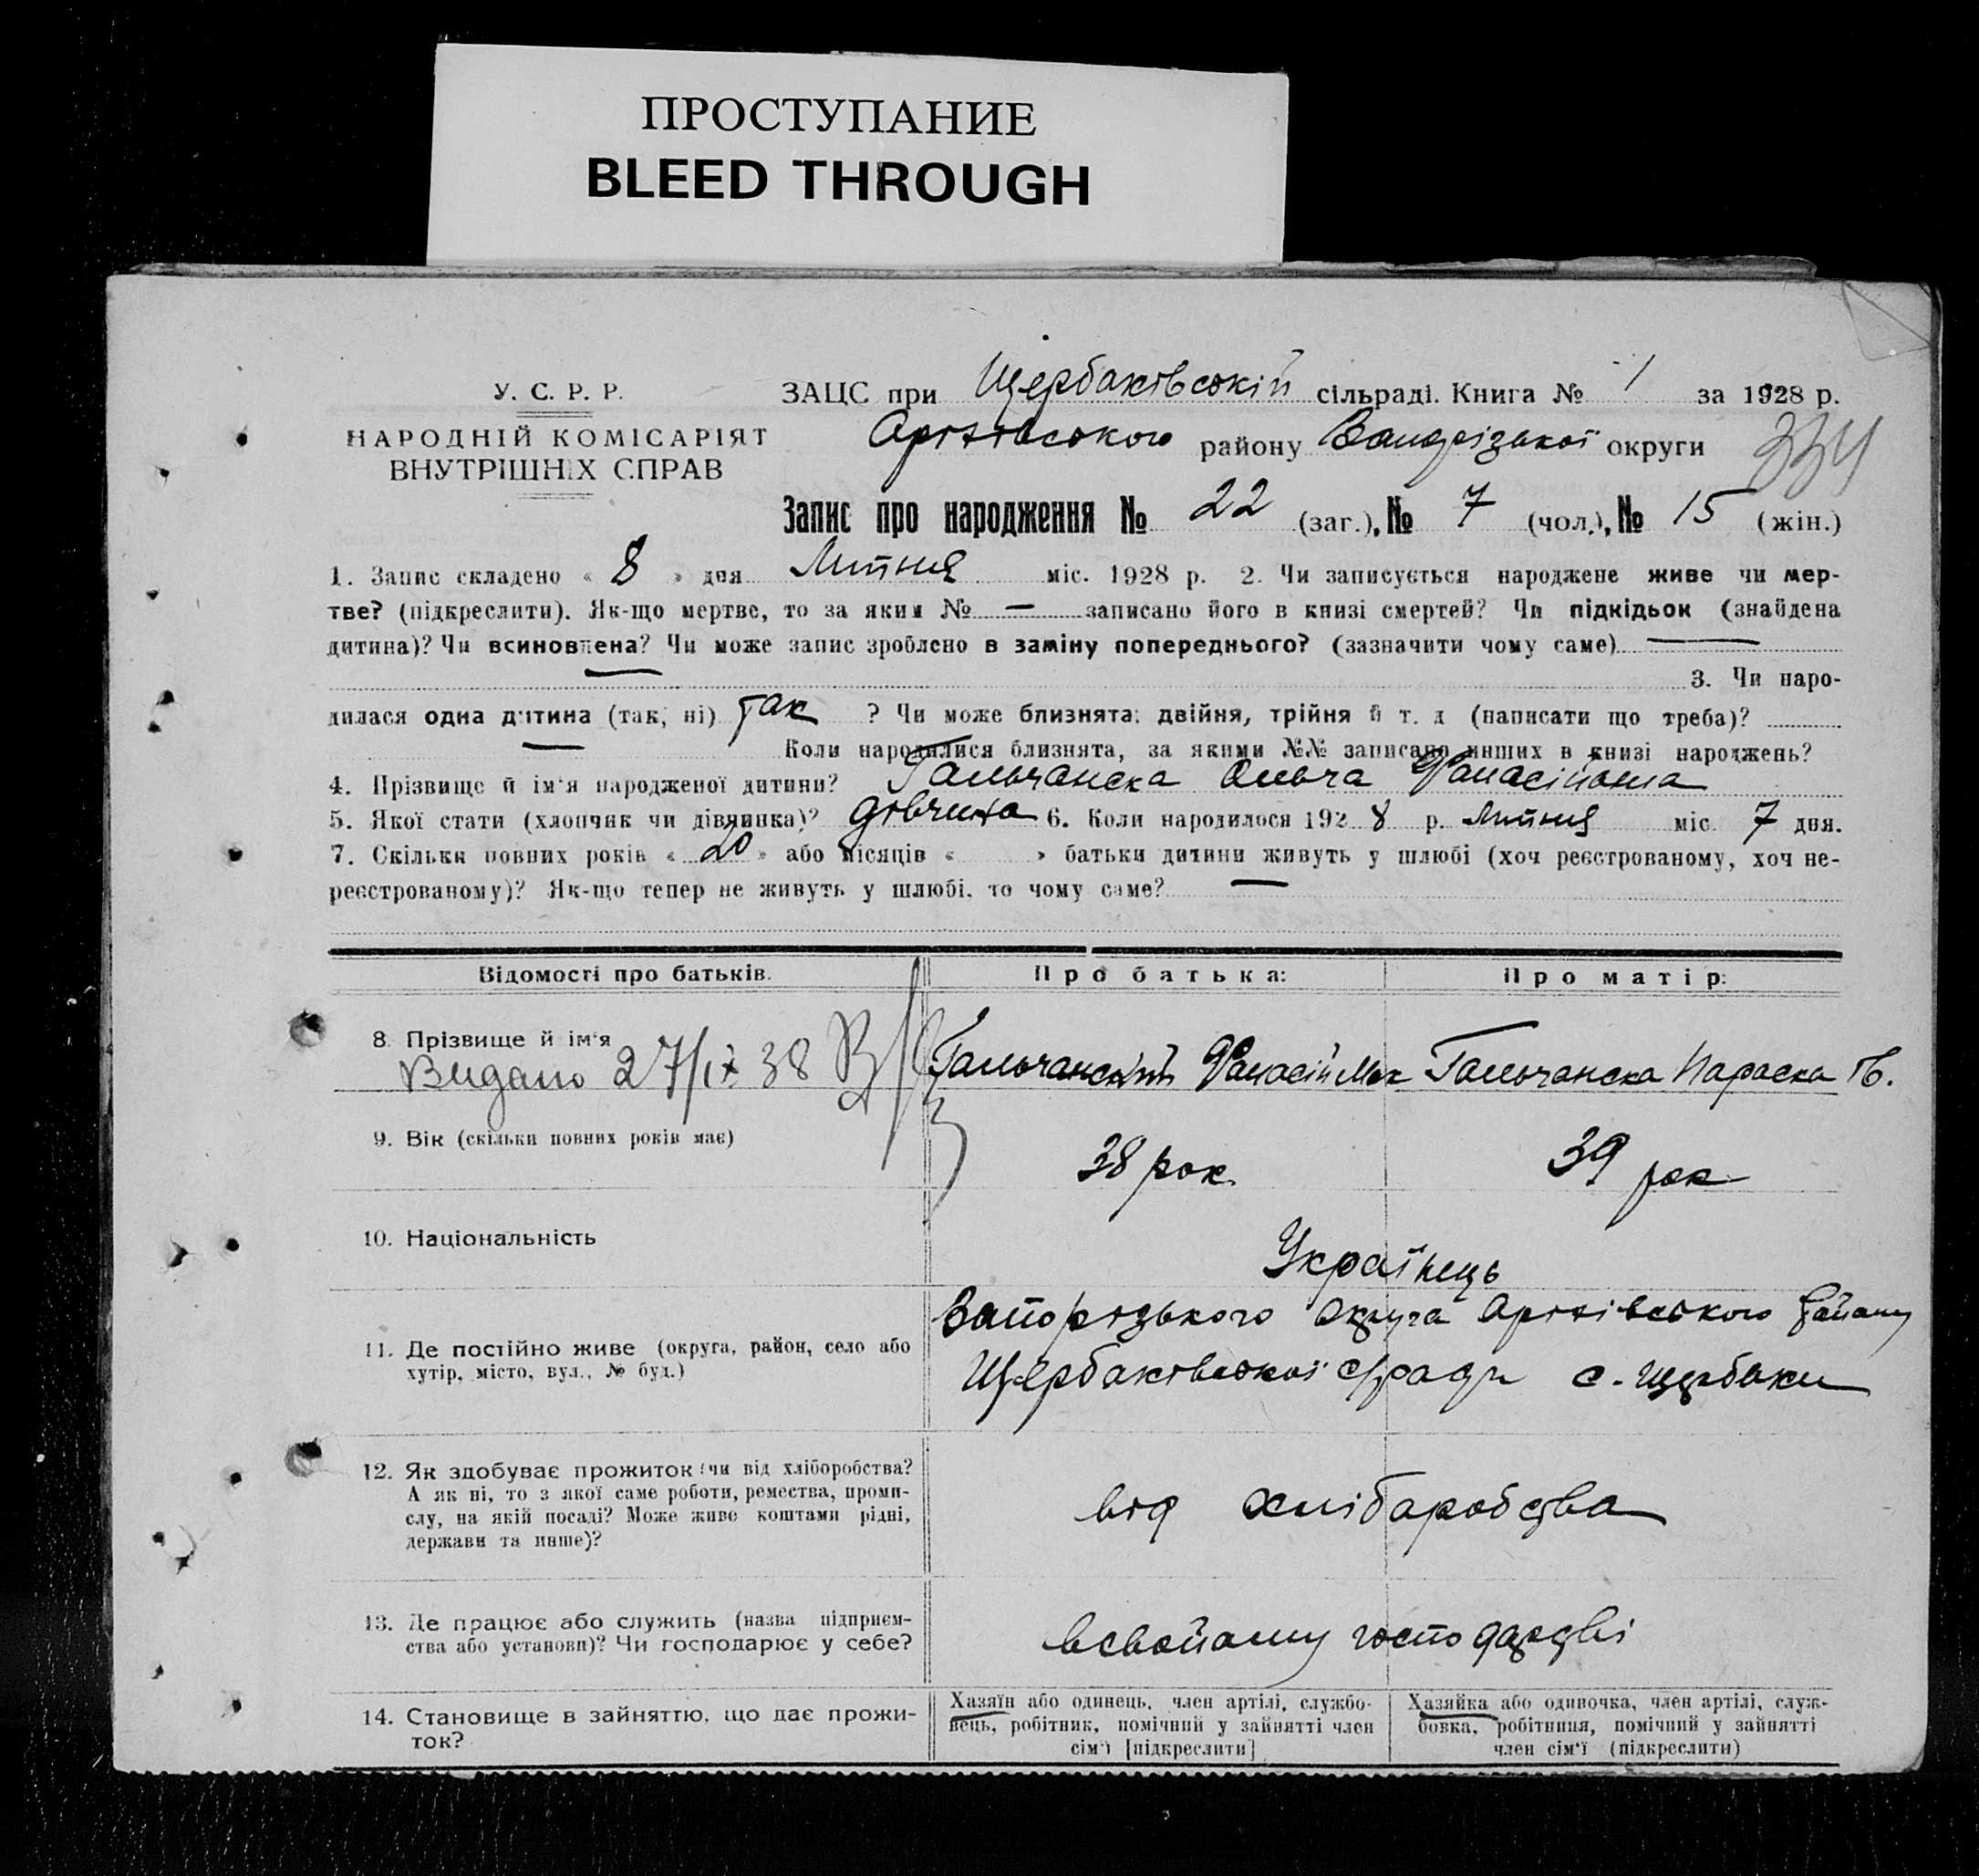 ПРОСТУПАНИЕ
BLEED THROUGH
У. С. Р. Р.
НАРОДНІЙ КОМІСАРІЯТ
ВНУТРІШНІХ СПРАВ
ЗАЦС при Щербаківській сільраді. Книга № 1 за 1928 р.
Оріхівського району Запорізької округи 334
Запис про народження № 22 (заг.), № 7 (чол.), № 15 (жін.)
1. Запис складено « 8 » дня Липня міс. 1928 р. 2. Чи записується народжене живе чи мер-
тве? (підкреслити). Як-що мертве, то за яким № — записано його в книзі смертей? Чи підкідьок (знайдена
дитина)? Чи всиновлена? Чи може запис зроблено в заміну попереднього? (зазначити чому саме) —
3. Чи наро-
дилася одна дитина (так, ні) так ? Чи може близнята: двійня, трійня й т. д (написати що треба)?
Коли народилися близнята, за якими №№ записано инших в книзі народжень?
4. Прізвище й ім'я народженої дитини? Гальчанска Ольга
5. Якої статі (хлопчик чи дівчинка)? дівчина 6. Коли народилося 1928 р. Липня міс 7 дня.
7. Скільки повних років « 20 » або місяців « » батьки дитини живуть у шлюбі (хоч реєстрованому, хоч не-
реєстрованому)? Як-що тепер не живуть у шлюбі, то чому саме? —
Відомості про батьків.
Про батька:
Про матір:
8. Прізвище й ім'я
Видано 27/IX 38
Гальчанский
Гальчанска Параска
9. Вік (скільки повних років має)
38 рок.
39 рок
10. Національність
Українець
11. Де постійно живе (округа, район, село або
хутір, місто, вул., № буд.)
Запорізького округа Оріхівського району
Щербаківської с/ради с. Щербаки
12. Як здобуває прожиток (чи від хліборобства?
А як ні, то з якої саме роботи, ремества, проми-
слу, на якій посаді? Може живе коштами рідні,
держави та инше)?
від хлібаробства
13. Де працює або служить (назва підприєм-
ства або установи)? Чи господарює у себе?
всвойому господарстві
14. Становище в зайняттю, що дає прожи-
ток?
Хазяїн або одинець, член артілі, службо-
вець, робітник, помічний у зайнятті член
сім'ї [підкреслити]
Хазяйка або одиночка, член артілі, служ-
бовка, робітниця, помічний у зайнятті
член сім'ї (підкреслити)